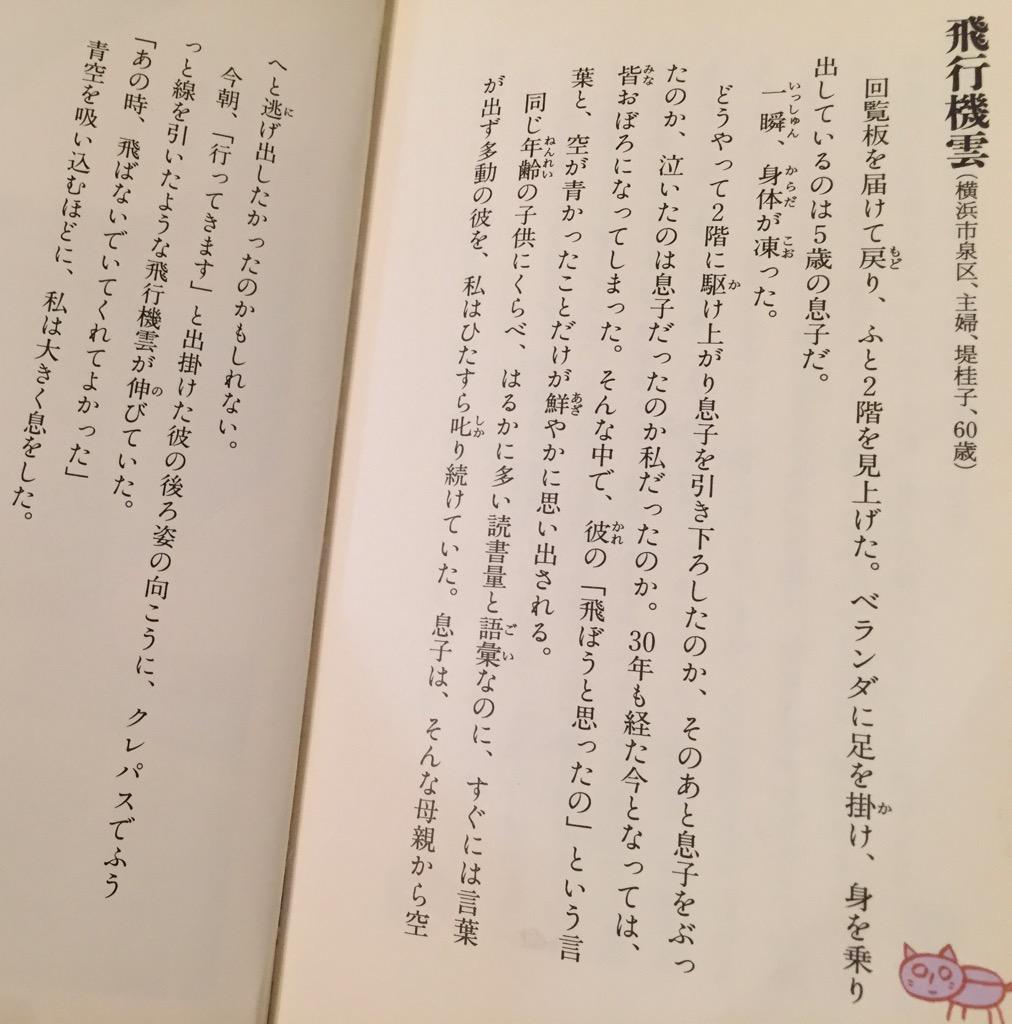 飛行機雲(横浜市泉区、主婦、堤桂子、60歳)
回覧板を届けて戻り、ふと2階を見上げた。ベランダに足を掛け、身を乗り
出しているのは5歳の息子だ。
一瞬、身体が凍った。
どうやって2階に駆け上がり息子を引き下ろしたのか、そのあと息子をぶっ
たのか、泣いたのは息子だったのか私だったのか。30年も経た今となっては、
皆おぼろになってしまった。そんな中で、彼の「飛ぼうと思ったの」という言
葉と、空が青かったことだけが鮮やかに思い出される。
同じ年齢の子供にくらべ、はるかに多い読書量と語彙なのに、すぐには言葉
が出ず多動の彼を、私はひたすら叱り続けていた。息子は、そんな母親から空
へと逃げ出したかったのかもしれない。
今朝、「行ってきます」と出掛けた彼の後ろ姿の向こうに、クレパスでふう
っと線を引いたような飛行機雲が伸びていた。
「あの時、飛ばないでいてくれてよかった」
青空を吸い込むほどに、私は大きく息をした。